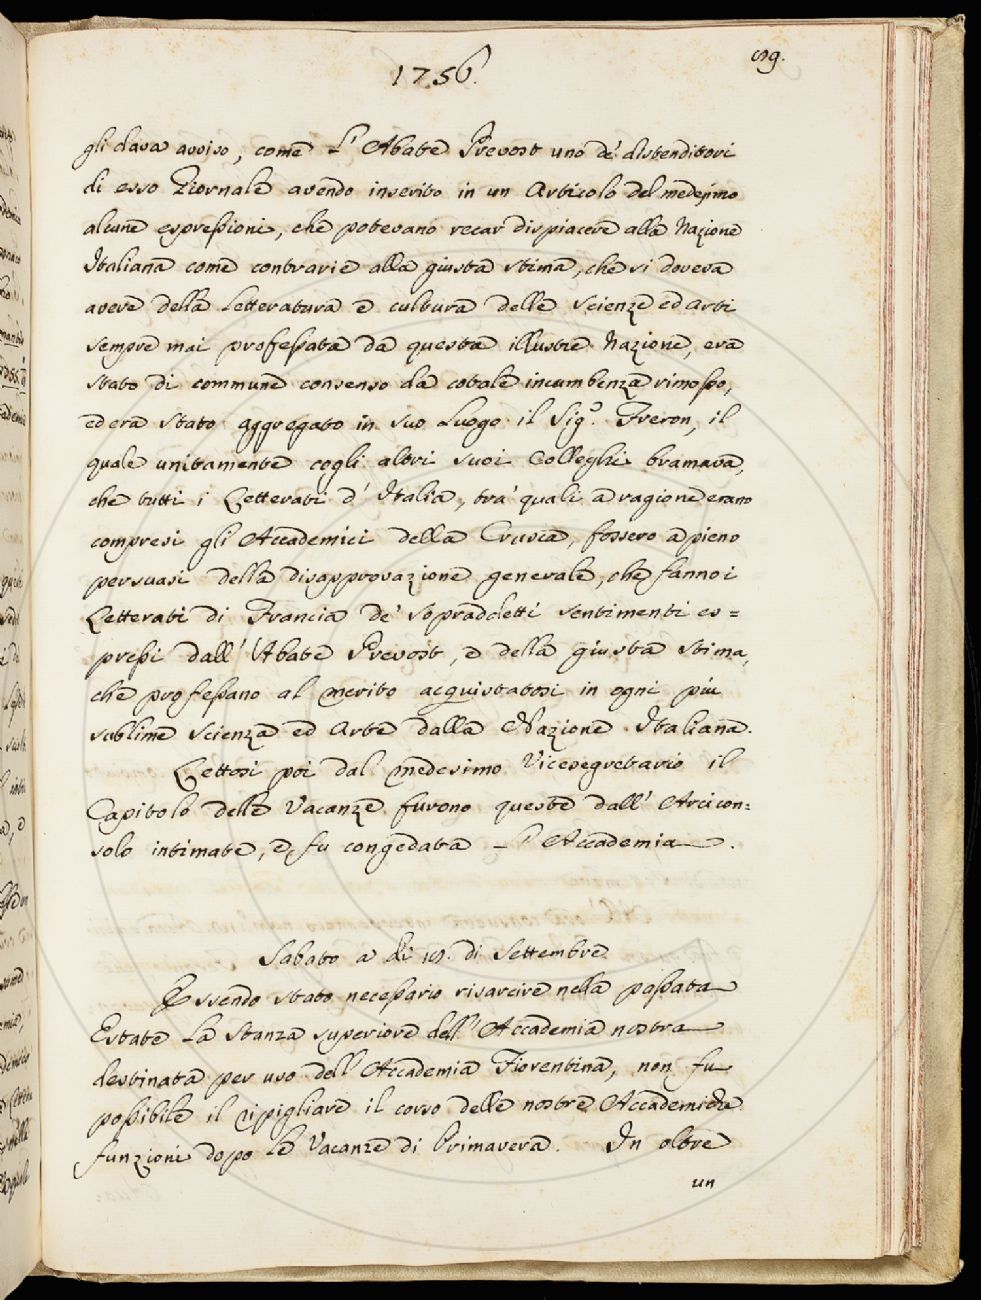 1756.
gli dava avviso, come l'Abate Prevost uno de' distenditori
di esso Giornale avendo inserito in un Articolo del medesimo
alcune espressioni, che potevano recar dispiacere alla Nazione
Italiana come contrarie alla giusta stima, che si doveva
avere della Letteratura e cultura delle scienze ed arti
sempre mai professata da questa illustre Nazione, era
stato di commune consenso da cotale incumbenza rimosso,
ed era stato aggregato in suo Luogo il Sig.e Freron, il
quale unitamente cogli altri suoi Colleghi bramava,
che tutti i Letterati d'Italia, tra' quali a ragione erano
compresi gli Accademici della Crusca, fossero a pieno
persuasi della disapprovazione generale, che fanno i
Letterati di Francia de' sopraddetti sentimenti es=
pressi dall'Abate Prevost, e della giusta stima,
che professano al merito acquistatosi in ogni più
sublime scienza ed arte dalla Nazione Italiana.
Lettosi poi dal medesimo Vicesegretario il
Capitolo delle Vacanze furono queste dall'Arcicon=
solo intimate, e fu congedata l'Accademia.
Sabato a di di Settembre
Essendo stato necessario risarcire nella passata
Estate la stanza superiore dell'Accademia nostra
destinata per uso dell'Accademia Fiorentina, non fu
possibile il ripigliare il corso delle nostre Accademiche
funzioni dopo le Vacanze di Primavera. In oltre
un